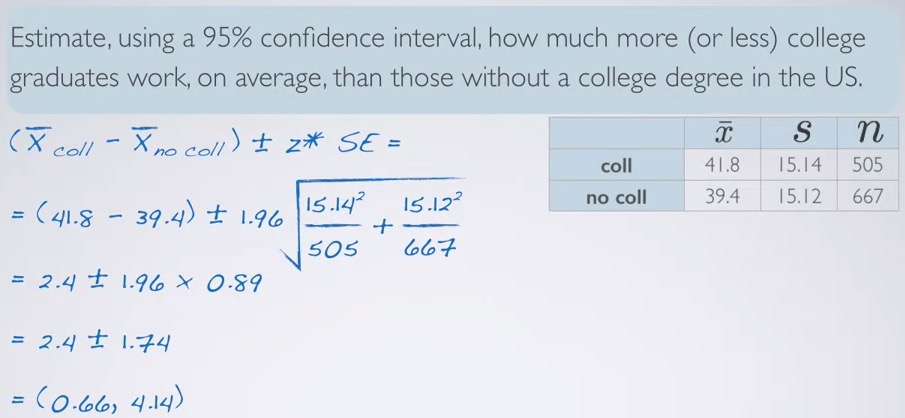 Estimate, using a 95% confidence interval, how much more (or less) college
graduates work, on average, than those without a college degree in the US.
(x̄ coll - x̄ no coll) ± z* SE =
= (41.8 - 39.4) ± 1.96 √(15.14²/505 + 15.12²/667)
= 2.4 ± 1.96 × 0.89
= 2.4 ± 1.74
= (0.66, 4.14)
x̄ s n
coll 41.8 15.14 505
no coll 39.4 15.12 667